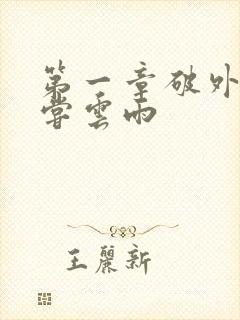 第一章破外
嘗雲雨
王麗新